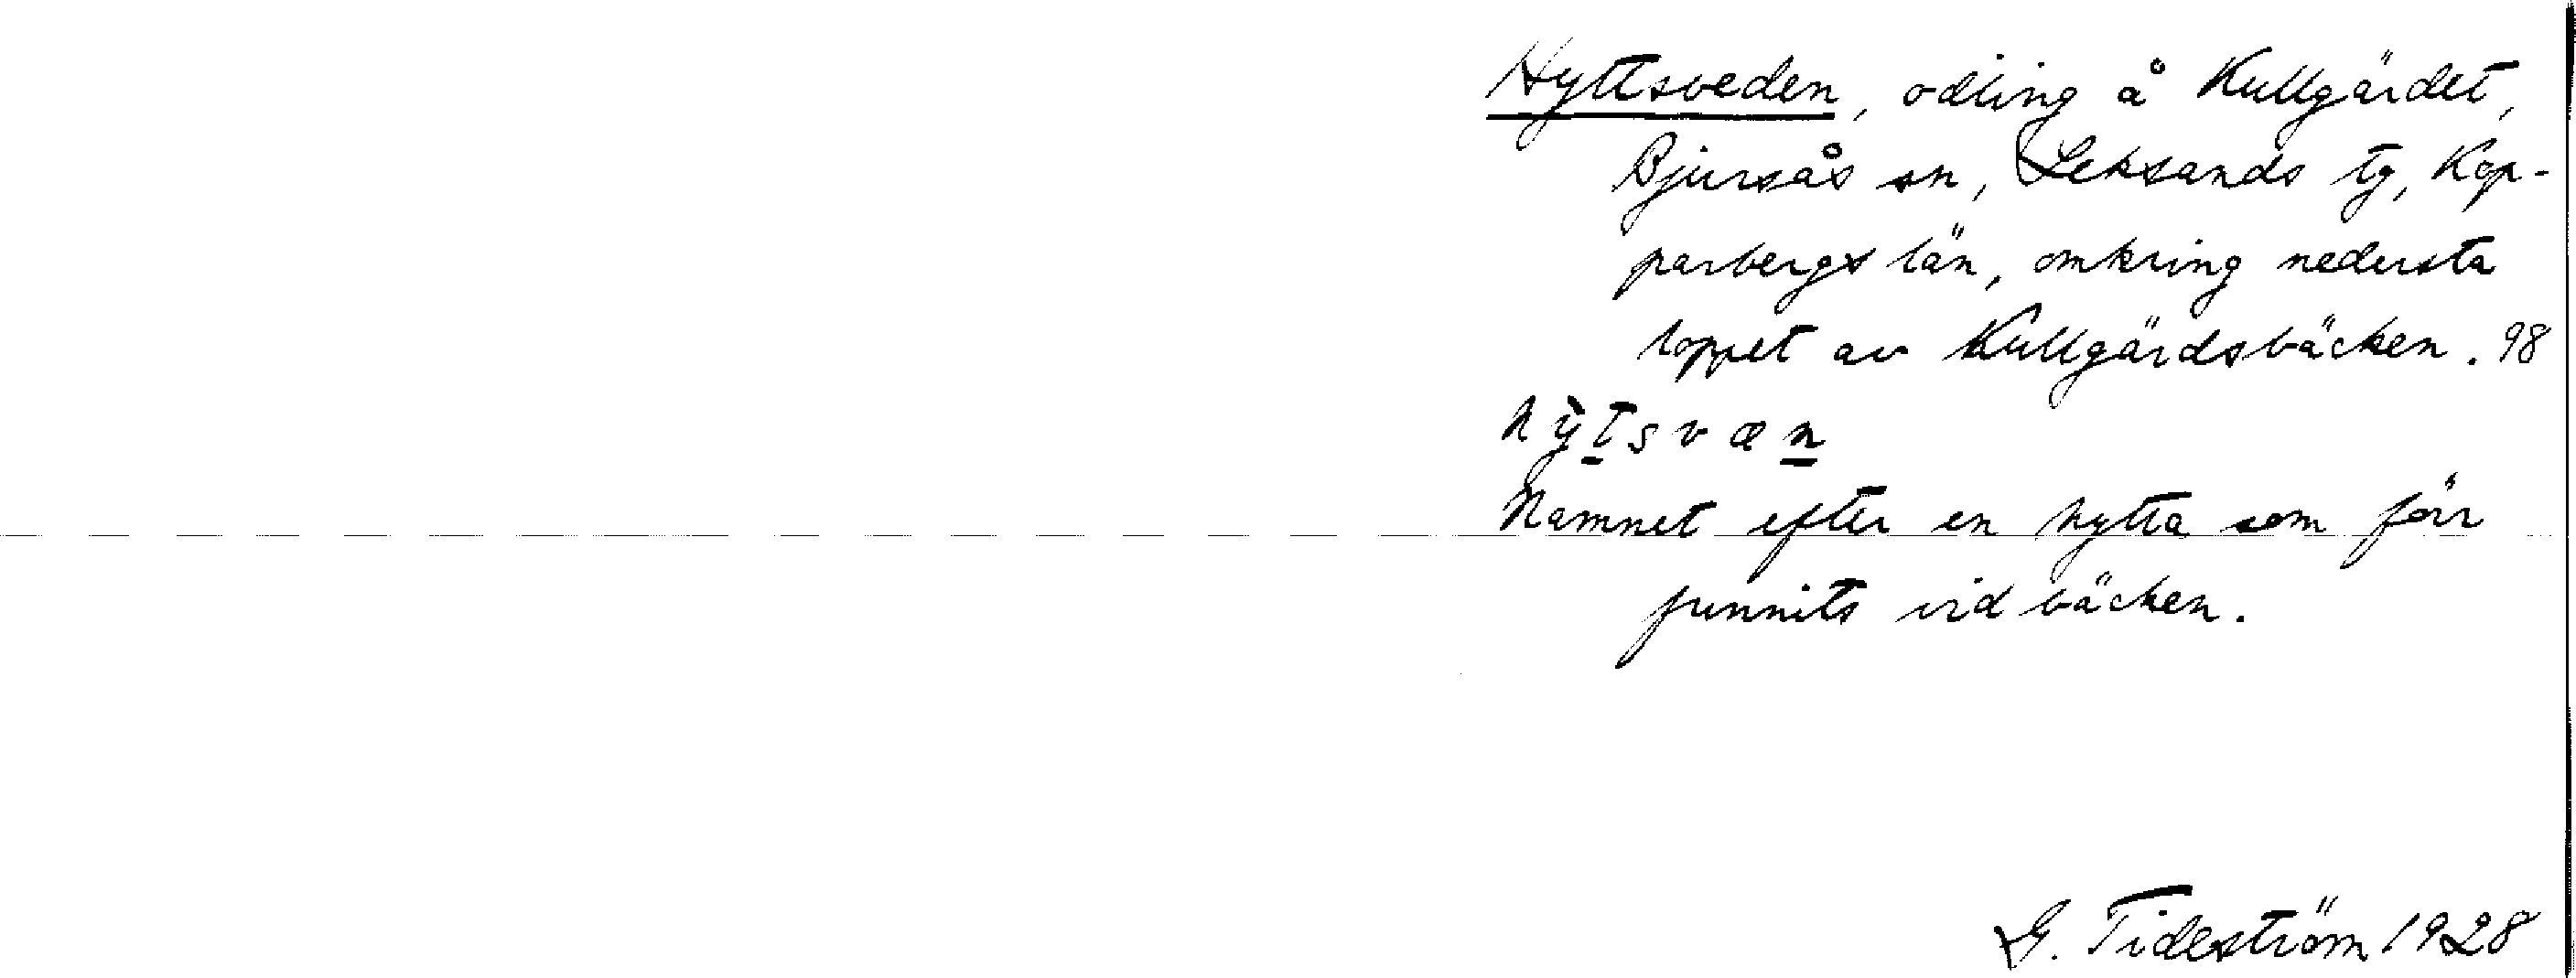 Hyttsveden, odling å Kullgärdet,
Bjursås sn, Leksands tg, Kop-
parbergs län, omkring nedersta
loppet av Kullgärdsbäcken. 98
hỳtsvæn
Namnet efter en hytta som förr
funnits vid bäcken.
G. Tideström 1928